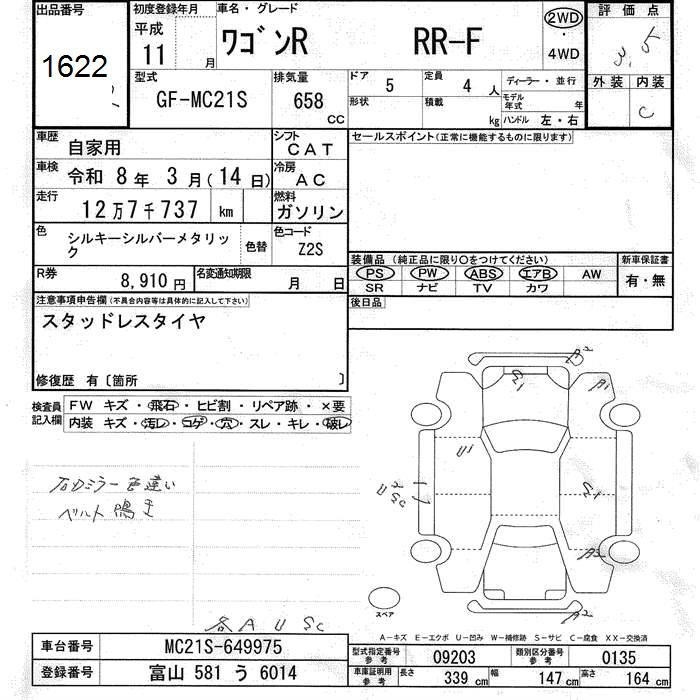 出品番号
1622
初度登録年月
平成
11 月
車名・グレード
ワゴンR RR-F
2WD
・
4WD
評価点
3.5
外装 内装
C
型式
GF-MC21S
排気量
658 CC
ドア 5
定員 4 人
ディーラー・並行
形状
積載 kg
モデル年式 年
ハンドル 左・右
車歴
自家用
シフト
CAT
車検
令和 8 年 3 月 (14 日)
冷房
AC
走行
12万7千737 km
燃料
ガソリン
色
シルキーシルバーメタリック
色替
色コード
Z2S
R券
8,910 円
名変通知期限 月 日
セールスポイント(正常に機能するものに限ります)
装備品 (純正品に限り○をつけてください)
PS PW ABS エアB AW
SR ナビ TV カワ
新車保証書
有・無
後日品
注意事項申告欄(不具合内容等は具体的に記入して下さい)
スタッドレスタイヤ
修復歴 有〔箇所 〕
検査員記入欄
FW キズ・飛石・ヒビ割・リペア跡・×要
内装 キズ・汚レ・コゲ・穴・スレ・キレ・破レ
右ミラー色違い
ベルト鳴き
A2
S1
A1
U1
U2
Sc
S1
A3
A2
スペア
各 A U Sc
A-キズ E-エクボ U-凹み W-補修跡 S-サビ C-腐食 XX-交換済
車台番号 MC21S-649975
登録番号 富山 581 う 6014
型式指定番号
参考
09203
類別区分番号
参考
0135
車庫証明用
参考
長さ 339 cm
幅 147 cm
高さ 164 cm